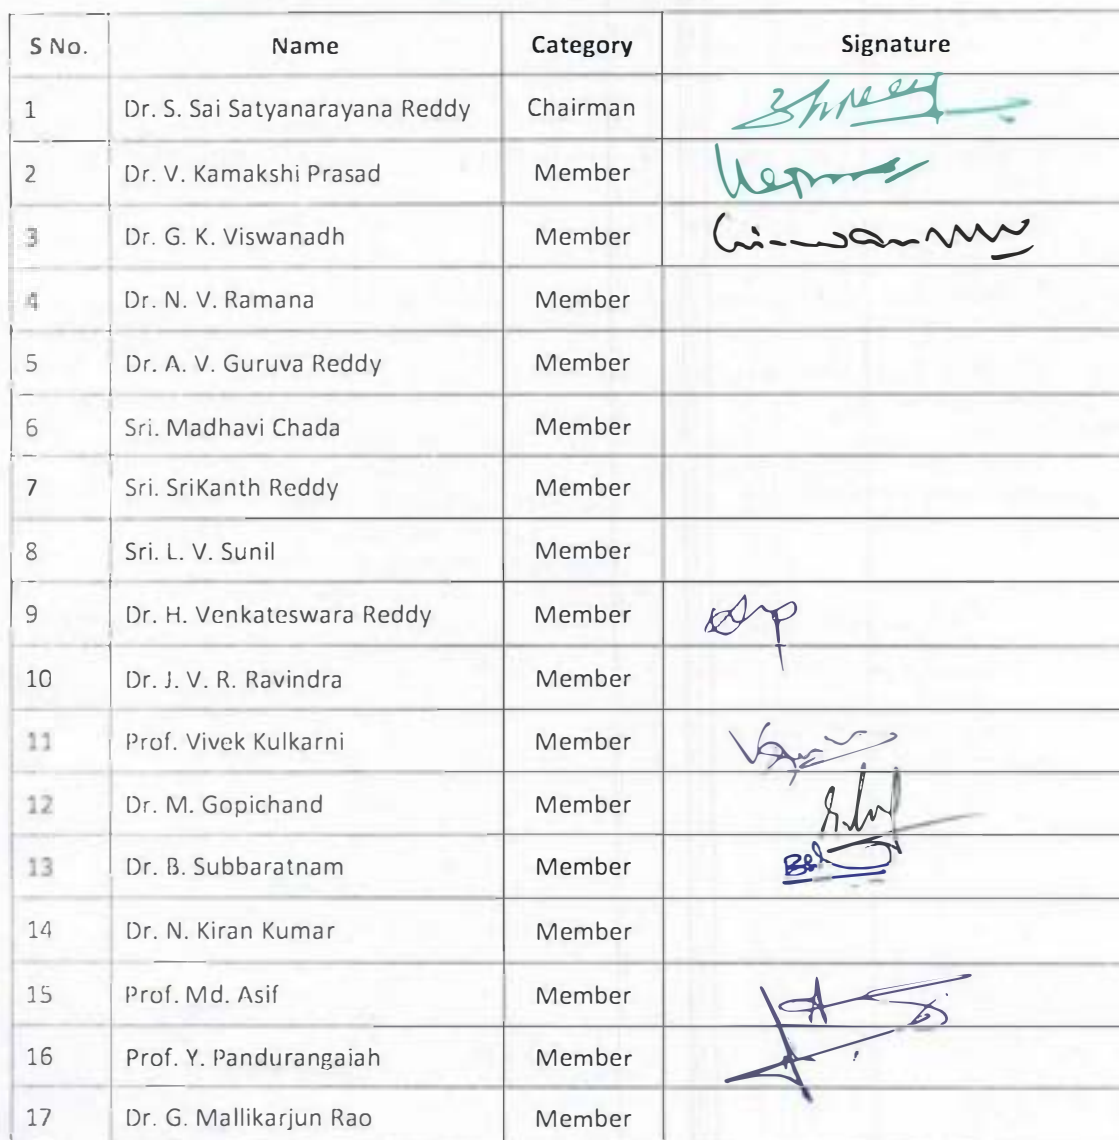 S No. Name Category Signature
1 Dr. S. Sai Satyanarayana Reddy Chairman
2 Dr. V. Kamakshi Prasad Member
3 Dr. G. K. Viswanadh Member
4 Dr. N. V. Ramana Member
5 Dr. A. V. Guruva Reddy Member
6 Sri. Madhavi Chada Member
7 Sri. SriKanth Reddy Member
8 Sri. L. V. Sunil Member
9 Dr. H. Venkateswara Reddy Member
10 Dr. J. V. R. Ravindra Member
11 Prof. Vivek Kulkarni Member
12 Dr. M. Gopichand Member
13 Dr. B. Subbaratnam Member
14 Dr. N. Kiran Kumar Member
15 Prof. Md. Asif Member
16 Prof. Y. Pandurangaiah Member
17 Dr. G. Mallikarjun Rao Member